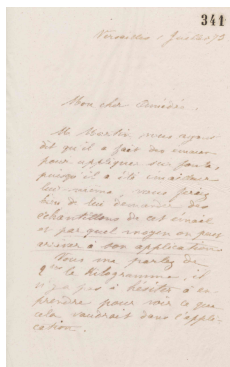 341
Versailles 1 Juillet 92
Mon cher Amédée.
Mr Martin vous ayant
dit qu'il a fait des émaux
pour appliquer sur fonte,
puisqu'il a été émailleur
lui-même, vous ferez
bien de lui demander des
échantillons de cet émail
et par quel moyen on peut
arriver à son application
Vous me parlez de
le Kilogramme, il
n'y a pas à hésiter à en
prendre pour voir ce que
cela vaudrait dans l'appli-
cation.